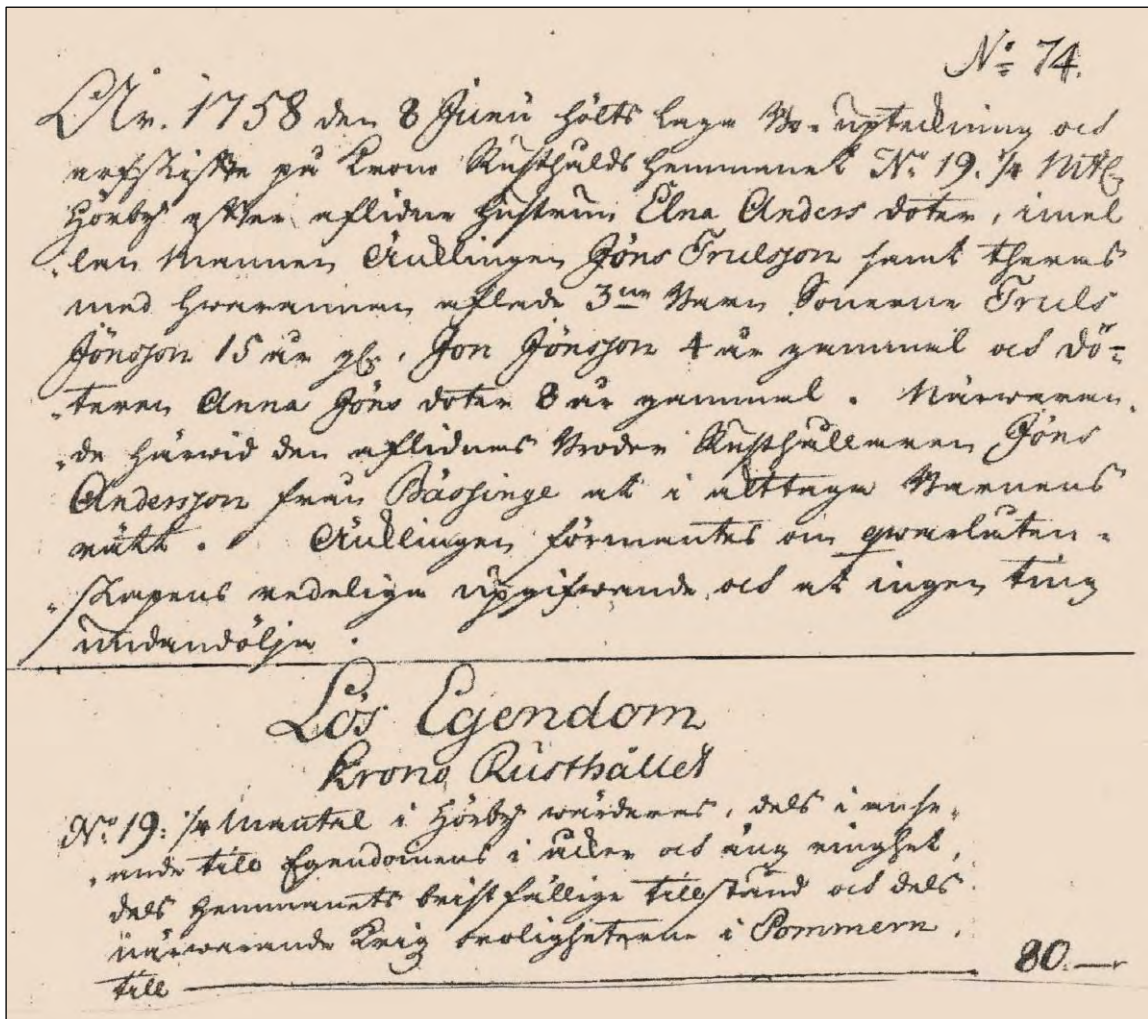 No 74.
År. 1758 den 8 Junii hölts laga Bo-upteckning och
arfskifte på Krono Rusthålds hemmanet No 19. 1/4 Mtl
Hörby efter aflidne hustrun Elna Anders doter, imel
-lan Mannen Äncklingen Jöns Trulsson samt theras
med hwarannan aflade 3ne Barn Sönerne Truls
Jönsson 15 år gl. Jon Jönsson 4 år gammal och Dö-
-teren Anna Jöns doter 8 år gammal. Närwaran-
-de härwid den aflidnes Broder Rusthållaren Jöns
Andersson från Bässinge at i akttaga Barnens
rätt. Äncklingen förmantes om qwarlåten-
-skapens redeliga upgifwande, och at ingen ting
undandölja.
Lös Egendom
Krono Rusthållet
No 19: 1/4 Mantal i Hörby wärderas, dels i anse-
-ende till Egendomens i åcker och äng ringhet,
dels hemmanets bristfällige tillstånd och dels
närwarande Krig oroligheterne i Pommern,
till 80.—